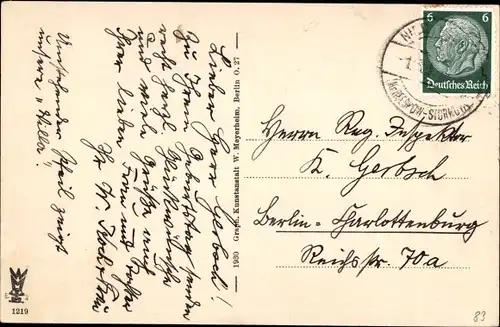 Lieber Herr Gerbsch!
Zu Ihrem Geburtstag senden
recht herzl. Glückwünsche
und viele Grüße auch
Ihrer lieben Frau und Tochter
Ihr W. u. Frau
Umstehender Pfeil zeigt
unsere "Villa"!
1930 Graph. Kunstanstalt W. Meyerheim, Berlin O. 27
1219
6 6
Deutsches Reich
Herrn Reg. Inspektor
K. Gerbsch
Berlin-Charlottenburg
Reichsstr. 70a
83